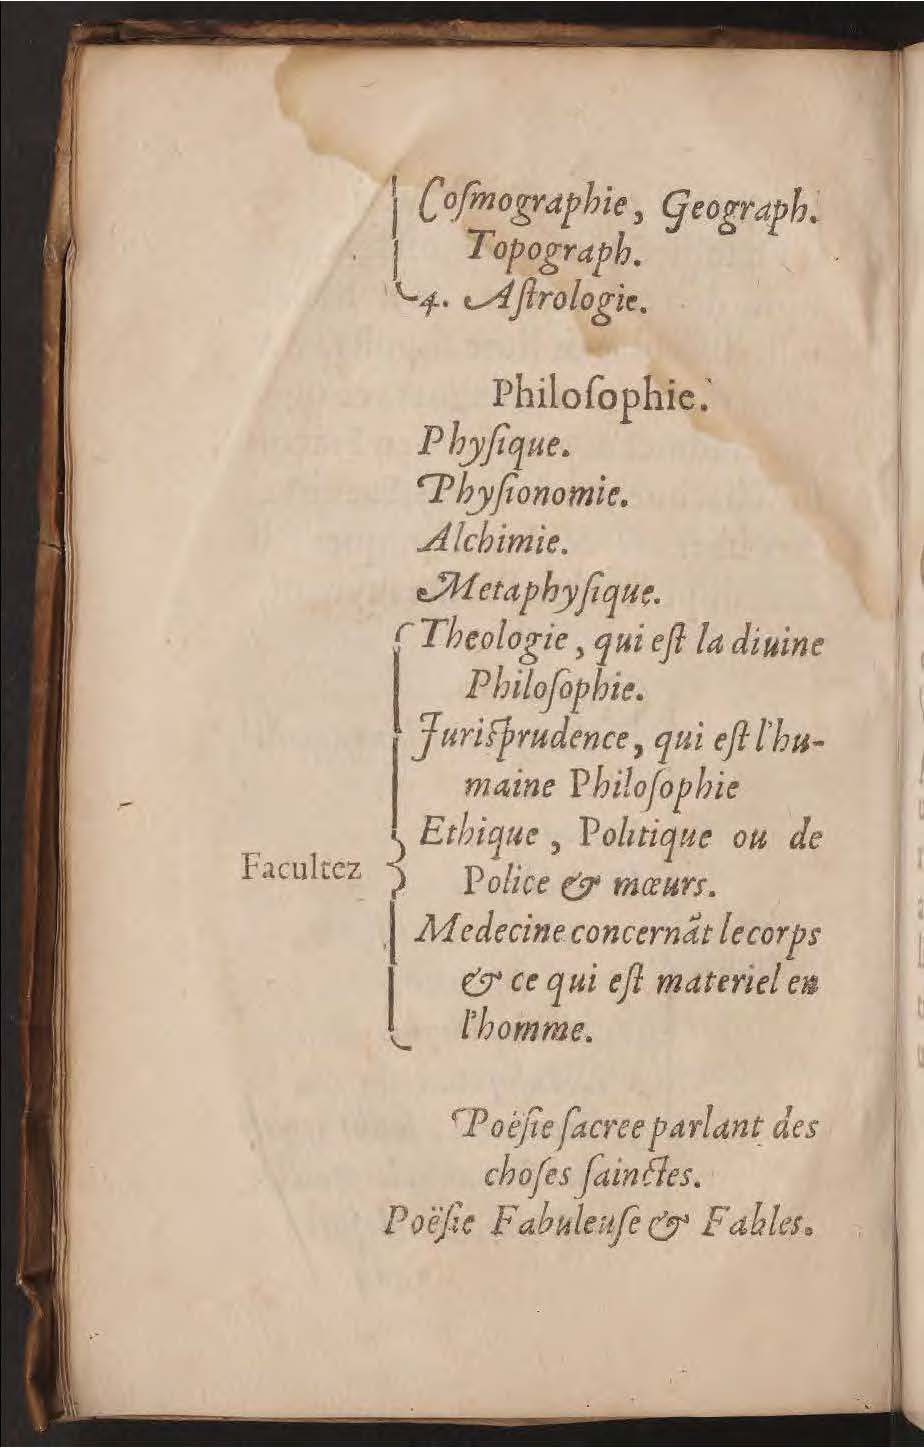 Coſmographie, Geograph.
Topograph.
4. Aſtrologie.
Philoſophie.
Phyſique.
Phyſionomie.
Alchimie.
Metaphyſique.
Theologie, qui eſt la diuine
Philoſophie.
Juriſprudence, qui eſt l'hu-
maine Philoſophie
Ethique, Politique ou de
Facultez
Police & mœurs.
Medecine concernãt le corps
& ce qui eſt materiel en
l'homme.
Poëſie ſacree parlant des
choſes ſainctes.
Poëſie Fabuleuſe & Fables.